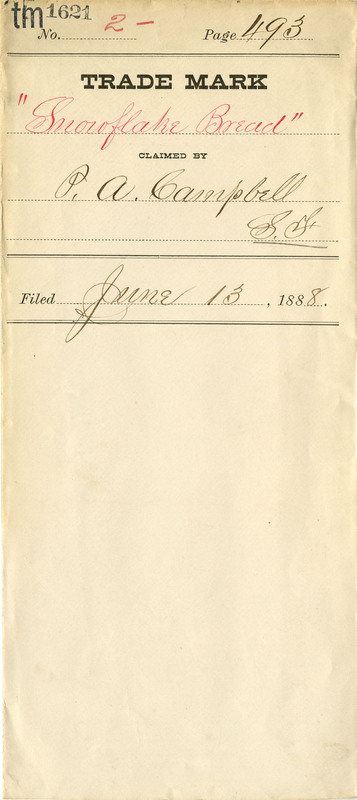 tm 1621
No. 2- Page 493
TRADE MARK
"Snowflake Bread"
CLAIMED BY
P. A. Campbell
S. F.
Filed June 13, 1888.